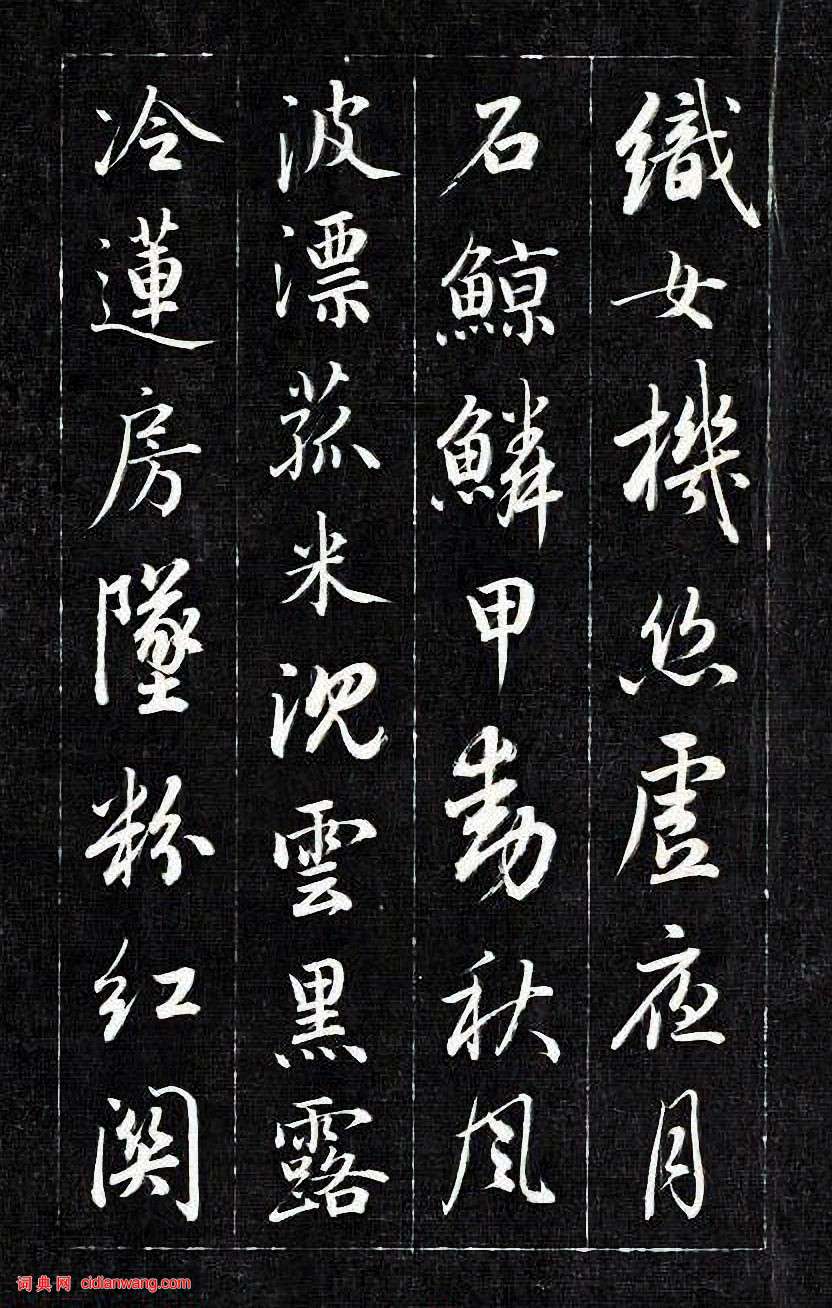 織女機絲虛夜月
石鯨鱗甲動秋風
波漂菰米沉雲黑露
冷蓮房墜粉紅關
词典网 cidianwang.com